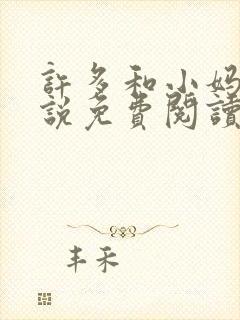 許多和小媽
說免費閱讀
丰禾